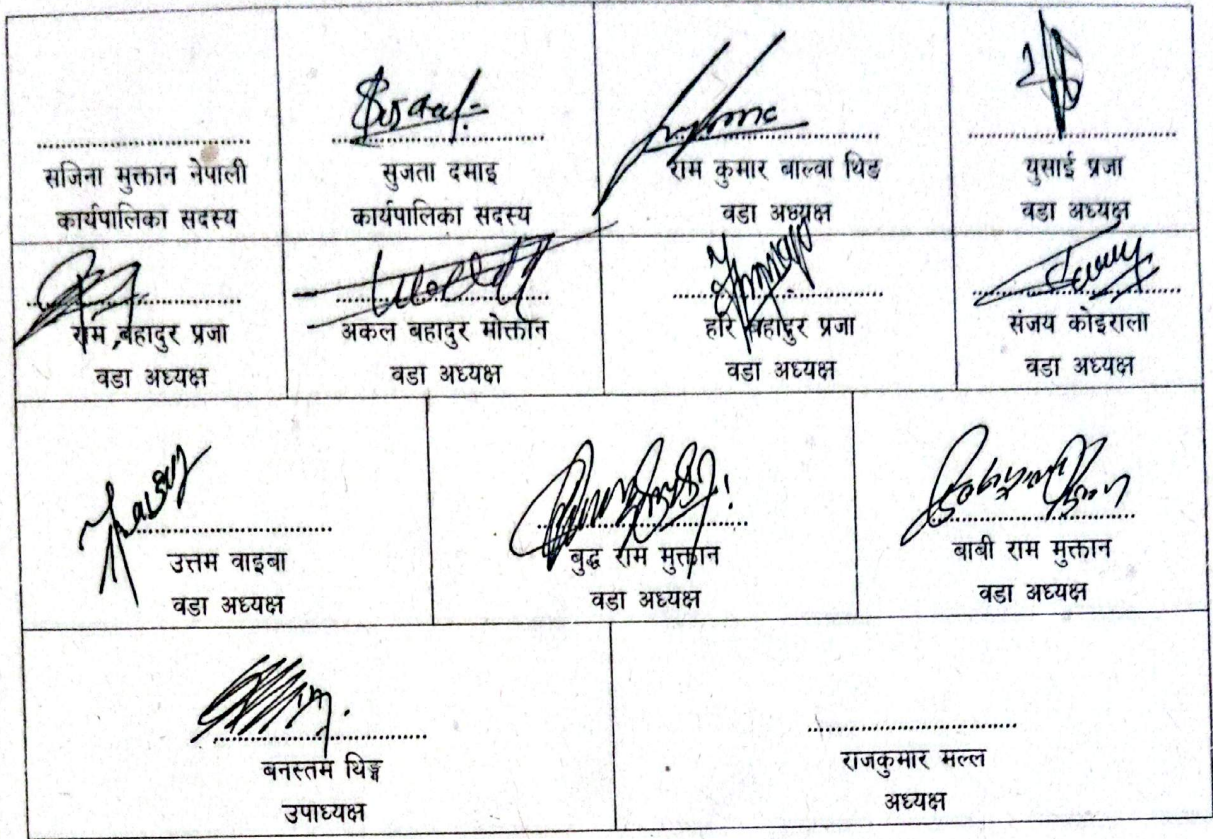 सजिना मुक्तान नेपाली
कार्यपालिका सदस्य
सुजता दमाइ
कार्यपालिका सदस्य
राम कुमार बाल्वा थिङ
वडा अध्यक्ष
युसाई प्रजा
वडा अध्यक्ष
राम बहादुर प्रजा
वडा अध्यक्ष
अकल बहादुर मोक्तान
वडा अध्यक्ष
हरि बहादुर प्रजा
वडा अध्यक्ष
संजय कोइराला
वडा अध्यक्ष
उत्तम वाइबा
वडा अध्यक्ष
बुद्ध राम मुक्तान
वडा अध्यक्ष
बाबी राम मुक्तान
वडा अध्यक्ष
बनस्तम थिङ्ग
उपाध्यक्ष
राजकुमार मल्ल
अध्यक्ष